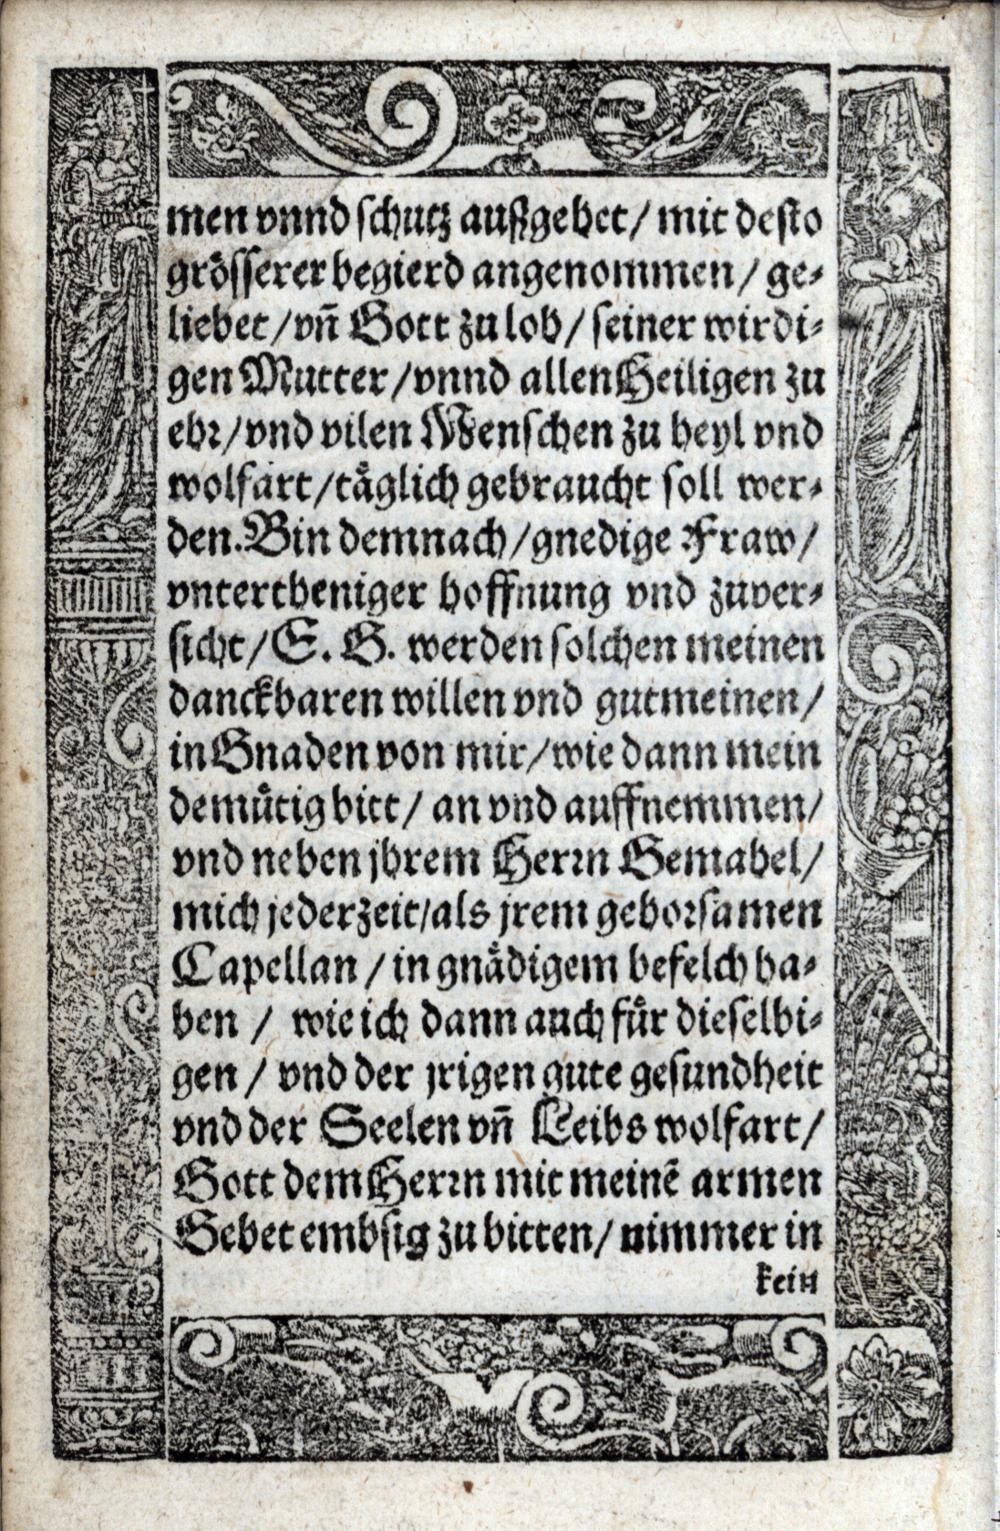 men vnnd schutz außgehet/ mit desto
grösserer begierd angenommen/ ge-
liebet/vñ Gott zu lob/ seiner wirdi-
gen Mutter/vnnd allen Heiligen zu
ehr/vnd vilen Menschen zu heyl vnd
wolfart/täglich gebraucht soll wer-
den. Bin demnach/gnedige Fraw/
vntertheniger hoffnung vnd zuver-
sicht/E. G. werden solchen meinen
danckbaren willen vnd gutmeinen/
in Gnaden von mir/wie dann mein
demütig bitt/ an vnd auffnemmen/
vnd neben jhrem Herrn Gemahel/
mich jederzeit/als jrem gehorsamen
Capellan/in gnädigem befelch ha-
ben / wie ich dann auch für dieselbi-
gen / vnd der jrigen gute gesundheit
vnd der Seelen vñ Leibs wolfart/
Gott dem Herrn mit meinẽ armen
Gebet embsig zu bitten/ nimmer in
kein